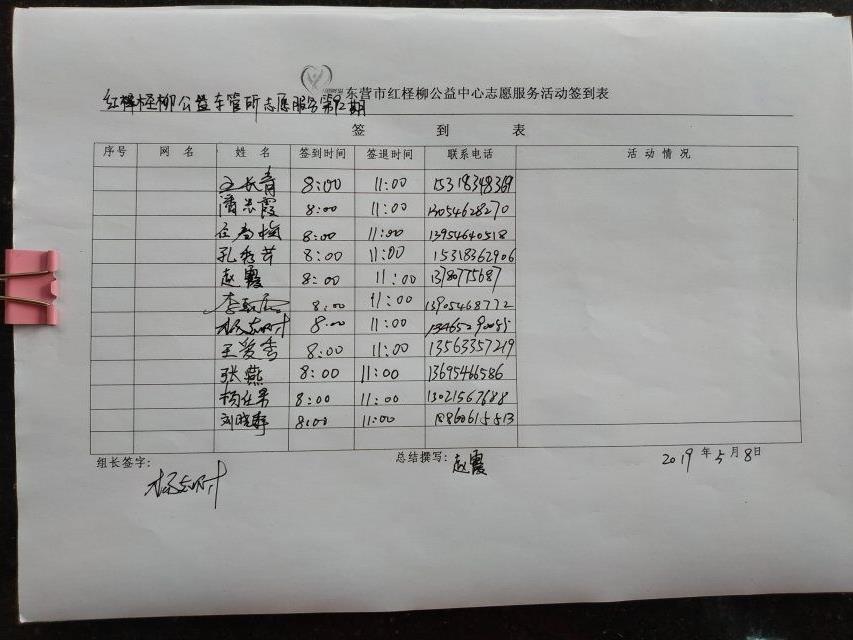 东营市红柽柳公益中心志愿服务活动签到表
红柽柳公益车管所志愿服务第92期
签 到 表
序号 网 名 姓 名 签到时间 签退时间 联系电话 活 动 情 况
王长青 8:00 11:00 15318348369
潘思霞 8:00 11:00 13054628270
8:00 11:00 13954640518
孔秀芹 8:00 11:00 15318362906
赵霞 8:00 11:00 13780775687
8:00 11:00 13905468772
8:00 11:00
王爱香 8:00 11:00 13563357219
张燕 8:00 11:00 13695466586
8:00 11:00 13021567688
刘晓静 8:00 11:00 18860615513
组长签字: 总结撰写: 赵霞 2019 年 5 月 8 日